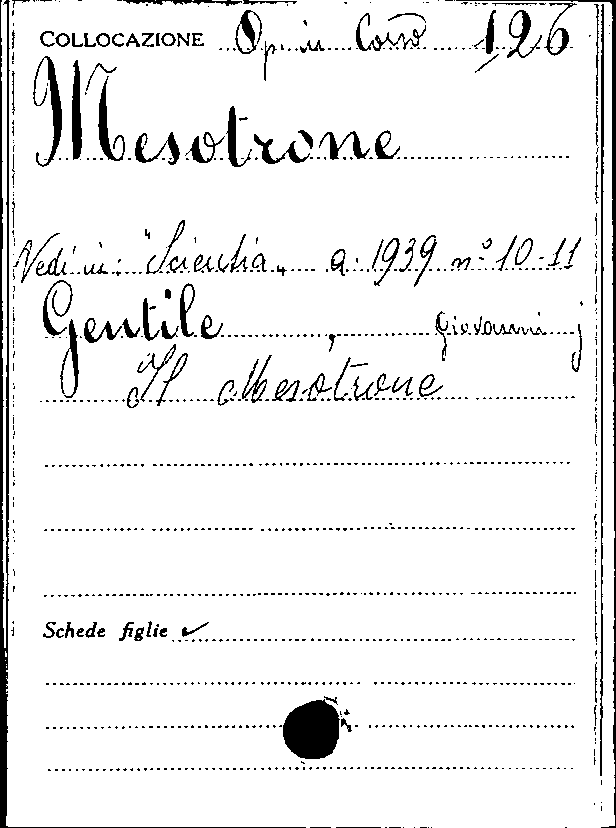 COLLOCAZIONE Op. in Corso 126
Mesotrone
Vedi in: "Scientia„ a. 1939 n.° 10-11
Gentile, Giovanni j
Il Mesotrone
Schede figlie ✓